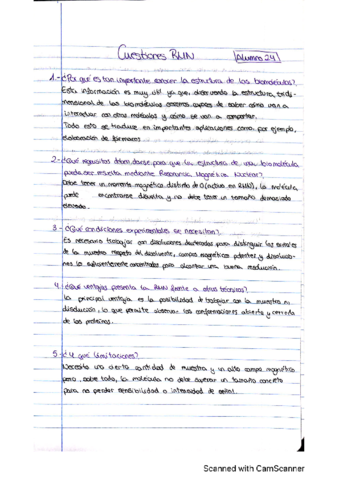 Cuestiones RMN
Alumno 24
1-¿Por qué es tan importante conocer la estructura de las biomoléculas?
Esta información es muy útil ya que, observando la estructura tridi-
mensional de las biomoléculas seremos capaces de saber cómo van a
interactuar con otras moléculas y cómo se van a comportar.
Todo esto se traduce en importantes aplicaciones como, por ejemplo,
elaboración de fármacos.
2-¿Qué requisitos deben darse para que la estructura de una biomolécula
pueda ser resuelta mediante Resonancia Magnética Nuclear?
Debe tener un momento magnético distinto de 0 (activo en RMN), la molécula
puede encontrarse disuelta y no debe tener un tamaño demasiado
elevado.
3-¿Qué condiciones experimentales se necesitan?
Es necesario trabajar con disoluciones deuteradas para distinguir las señales
de la muestra respecto del disolvente, campos magnéticos potentes y disolucio-
nes lo suficientemente concentradas para alcanzar una buena resolución.
4-¿Qué ventajas presenta la RMN frente a otras técnicas?
La principal ventaja es la posibilidad de trabajar con la muestra en
disolución, lo que permite observar las conformaciones abierta y cerrada
de las proteínas.
5-¿Y qué limitaciones?
Necesita una cierta cantidad de muestra y un alto campo magnético
pero, sobre todo, la molécula no debe superar un tamaño concreto
para no perder sensibilidad o intensidad de señal.
Scanned with CamScanner